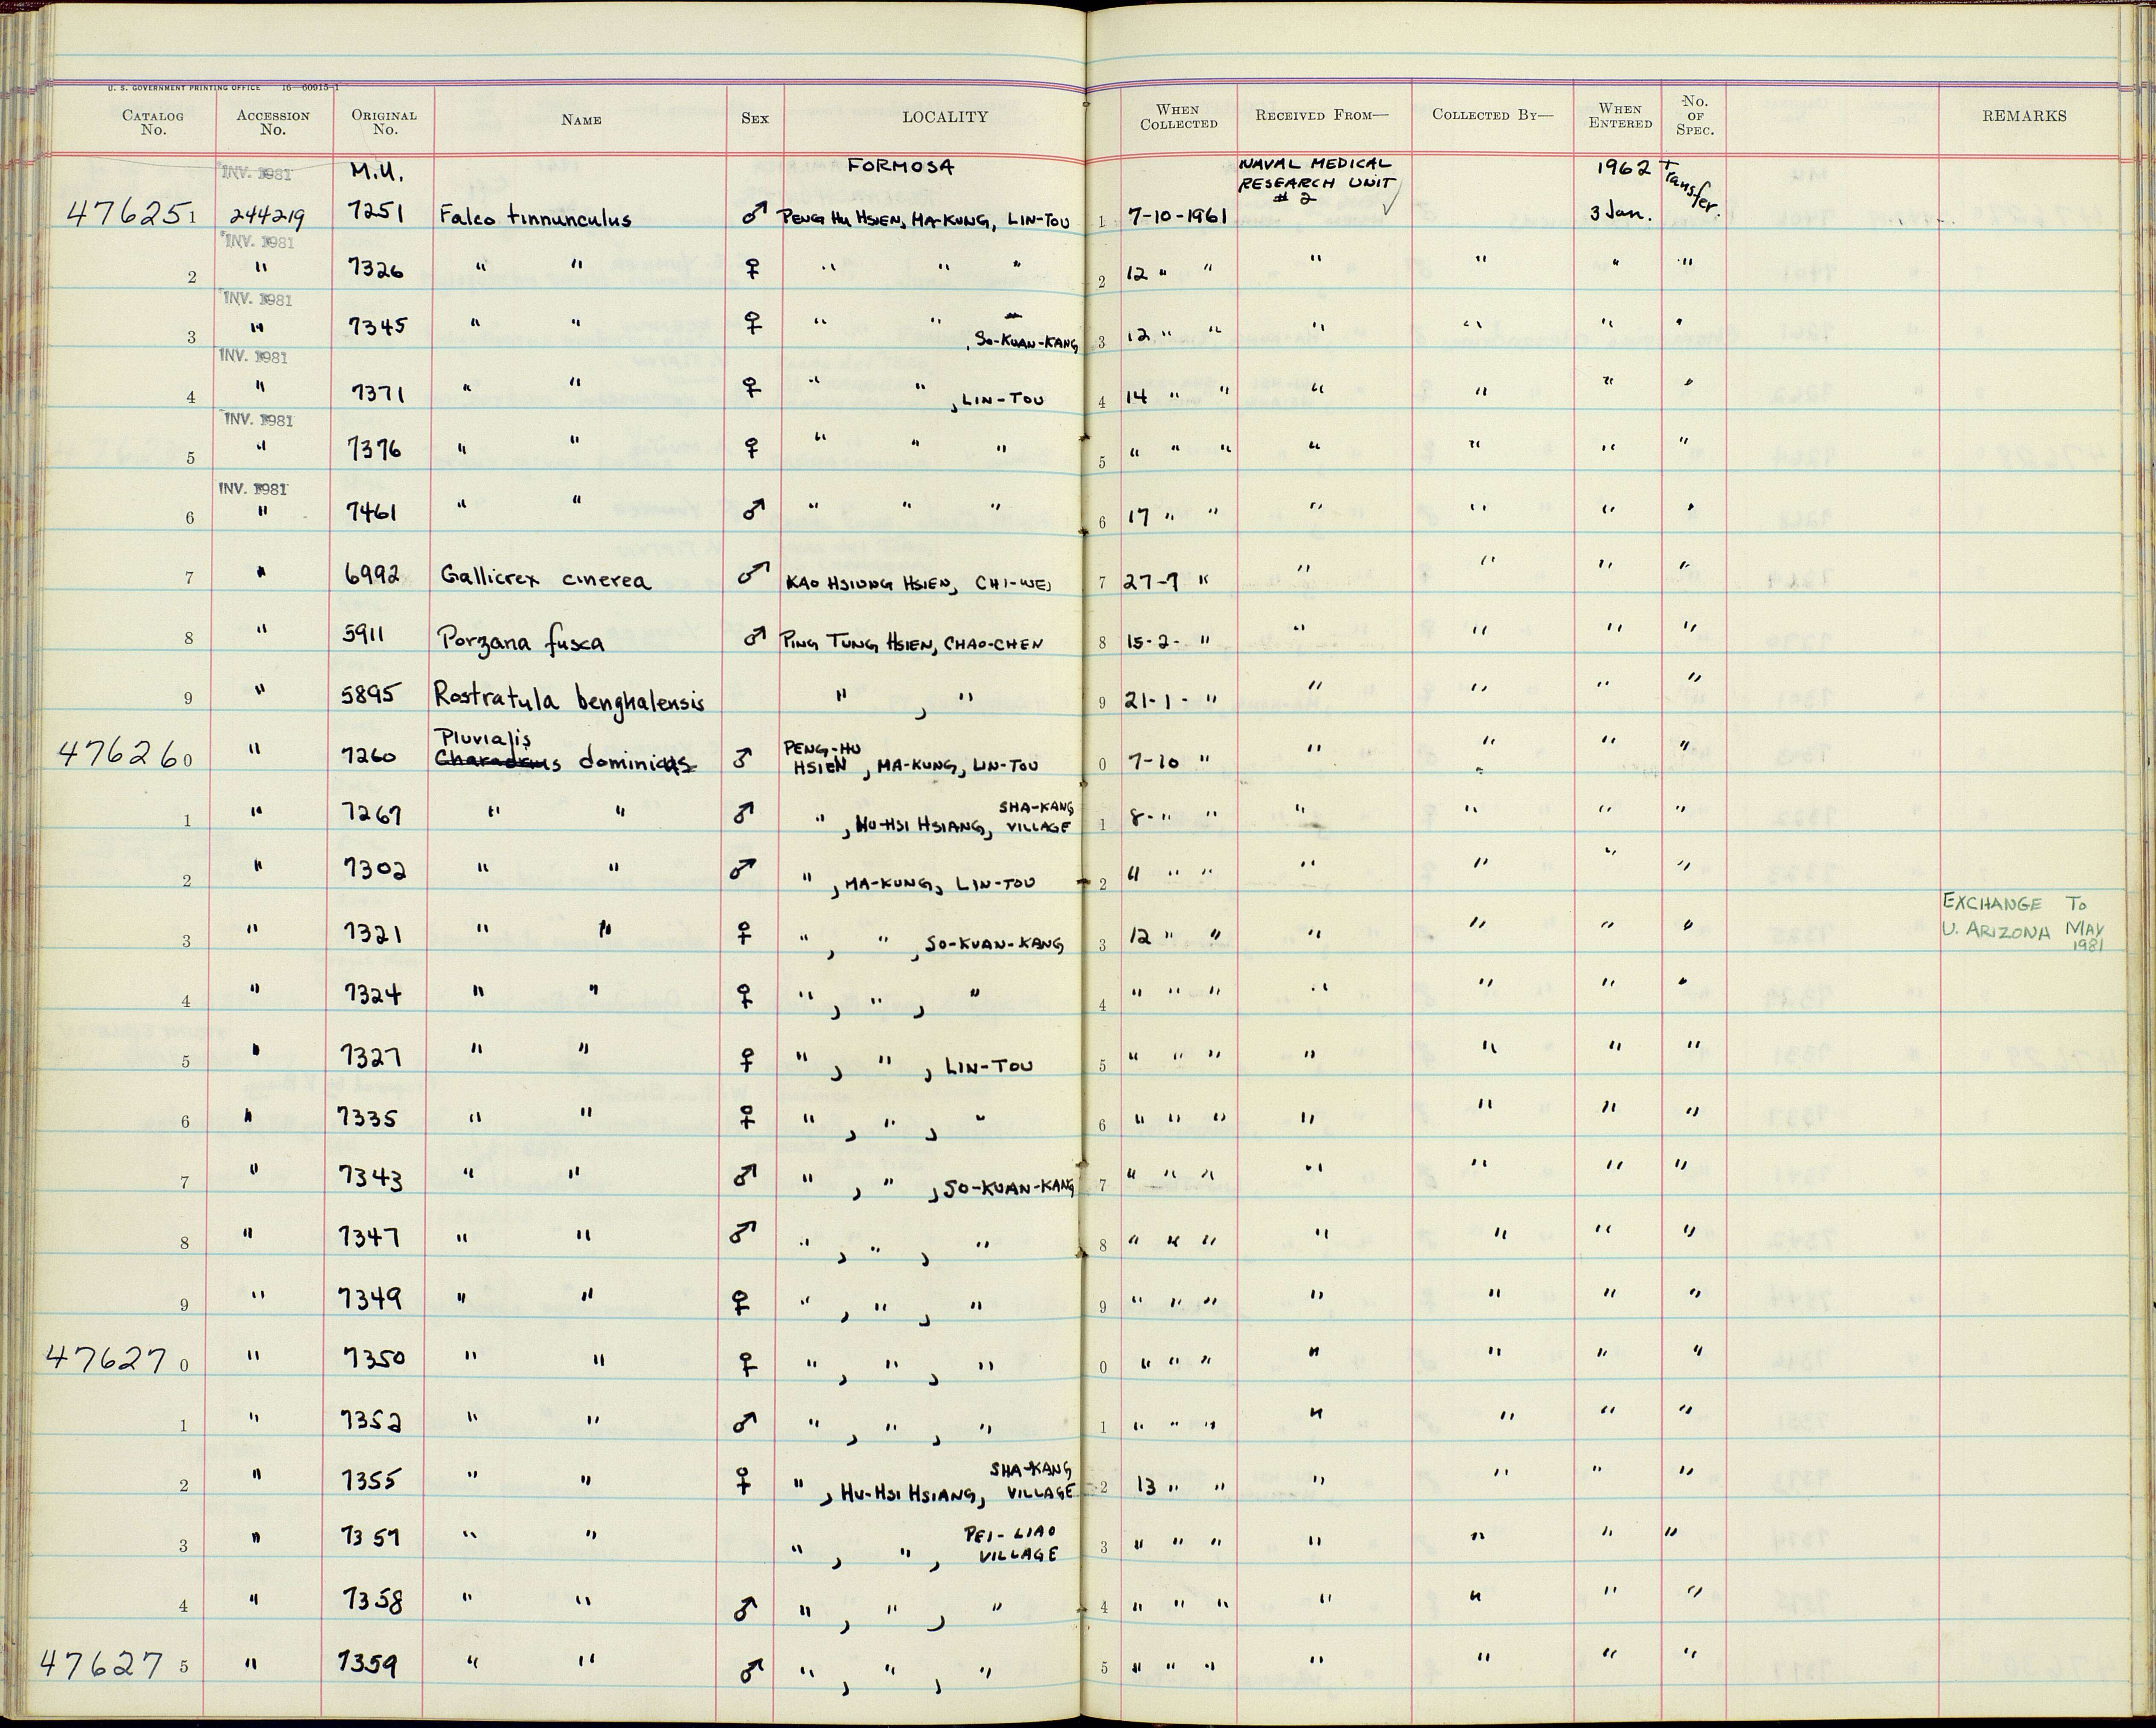 U. S. GOVERNMENT PRINTING OFFICE 16—60915-1
CATALOG No. ACCESSION No. ORIGINAL No. NAME SEX LOCALITY WHEN COLLECTED RECEIVED FROM— COLLECTED BY— WHEN ENTERED No. OF SPEC. REMARKS
INV. 1981 M.U. FORMOSA NAVAL MEDICAL RESEARCH UNIT # 2 ✓ 1962 Transfer.
476251 244219 7251 Falco tinnunculus ♂ PENG HU HSIEN, MA-KUNG, LIN-TOU 1 7-10-1961 3 Jan.
INV. 1981
2 " 7326 " " ♀ " " " 2 12 " " " " " "
INV. 1981
3 " 7345 " " ♀ " " , SO-KUAN-KANG 3 12 " " " " " "
INV. 1981
4 " 7371 " " ♀ " " , LIN-TOU 4 14 " " " " " "
INV. 1981
5 " 7376 " " ♀ " " " 5 " " " " " " "
INV. 1981
6 " 7461 " " ♂ " " " 6 17 " " " " " "
7 " 6992 Gallicrex cinerea ♂ KAO HSIUNG HSIEN, CHI-WEI 7 27-7 " " " " "
8 " 5911 Porzana fusca ♂ PING TUNG HSIEN, CHAO-CHEN 8 15-2- " " " " "
9 " 5895 Rostratula benghalensis " , " 9 21-1- " " " " "
Pluvialis
476260 " 7260 Charadrius dominicus ♂ PENG-HU HSIEN, MA-KUNG, LIN-TOU 0 7-10 " " " " "
1 " 7267 " " ♂ " , HU-HSI HSIANG, SHA-KANG VILLAGE 1 8- " " " " " "
2 " 7302 " " ♂ " , MA-KUNG, LIN-TOU 2 11 " " " " " "
3 " 7321 " " ♀ " , " , SO-KUAN-KANG 3 12 " " " " " " EXCHANGE TO U. ARIZONA MAY 1981
4 " 7324 " " ♀ " , " , " 4 " " " " " " "
5 " 7327 " " ♀ " , " , LIN-TOU 5 " " " " " " "
6 " 7335 " " ♀ " , " , " 6 " " " " " " "
7 " 7343 " " ♂ " , " , SO-KUAN-KANG 7 " " " " " " "
8 " 7347 " " ♂ " , " , " 8 " " " " " " "
9 " 7349 " " ♀ " , " , " 9 " " " " " " "
476270 " 7350 " " ♀ " , " , " 0 " " " " " " "
1 " 7352 " " ♂ " , " , " 1 " " " " " " "
2 " 7355 " " ♀ " , HU-HSI HSIANG, SHA-KANG VILLAGE 2 13 " " " " " "
3 " 7357 " " " , " , PEI-LIAO VILLAGE 3 " " " " " " "
4 " 7358 " " ♂ " , " , " 4 " " " " " " "
476275 " 7359 " " ♂ " , " , " 5 " " " " " " "